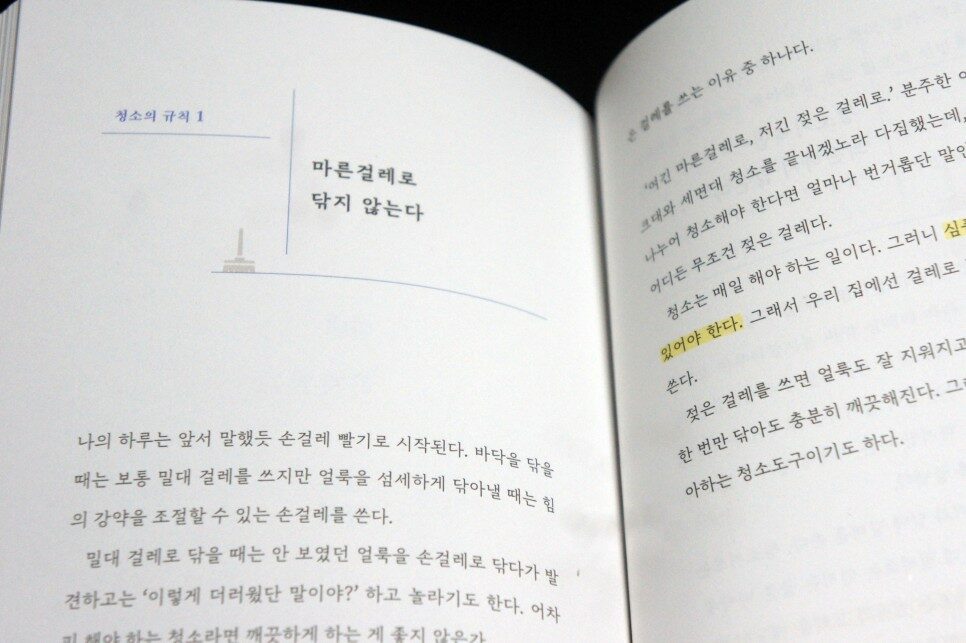 청소의 규칙 1
마른걸레로
닦지 않는다
나의 하루는 앞서 말했듯 손걸레 빨기로 시작된다. 바닥을 닦을
때는 보통 밀대 걸레를 쓰지만 얼룩을 섬세하게 닦아낼 때는 힘
의 강약을 조절할 수 있는 손걸레를 쓴다.
밀대 걸레로 닦을 때는 안 보였던 얼룩을 손걸레로 닦다가 발
견하고는 ‘이렇게 더러웠단 말이야?’ 하고 놀라기도 한다. 어차
피 해야 하는 청소라면 깨끗하게 하는 게 좋지 않은가
은 걸레를 쓰는 이유 중 하나다.
‘여긴 마른걸레로, 저긴 젖은 걸레로.’ 분주한
크대와 세면대 청소를 끝내겠노라 다짐했는데,
나누어 청소해야 한다면 얼마나 번거롭단
어디든 무조건 젖은 걸레다.
청소는 매일 해야 하는 일이다. 그러니
있어야 한다. 그래서 우리 집에선 걸레로
쓴다.
젖은 걸레를 쓰면 얼룩도 잘 지워지고
한 번만 닦아도 충분히 깨끗해진다.
아하는 청소도구이기도 하다.